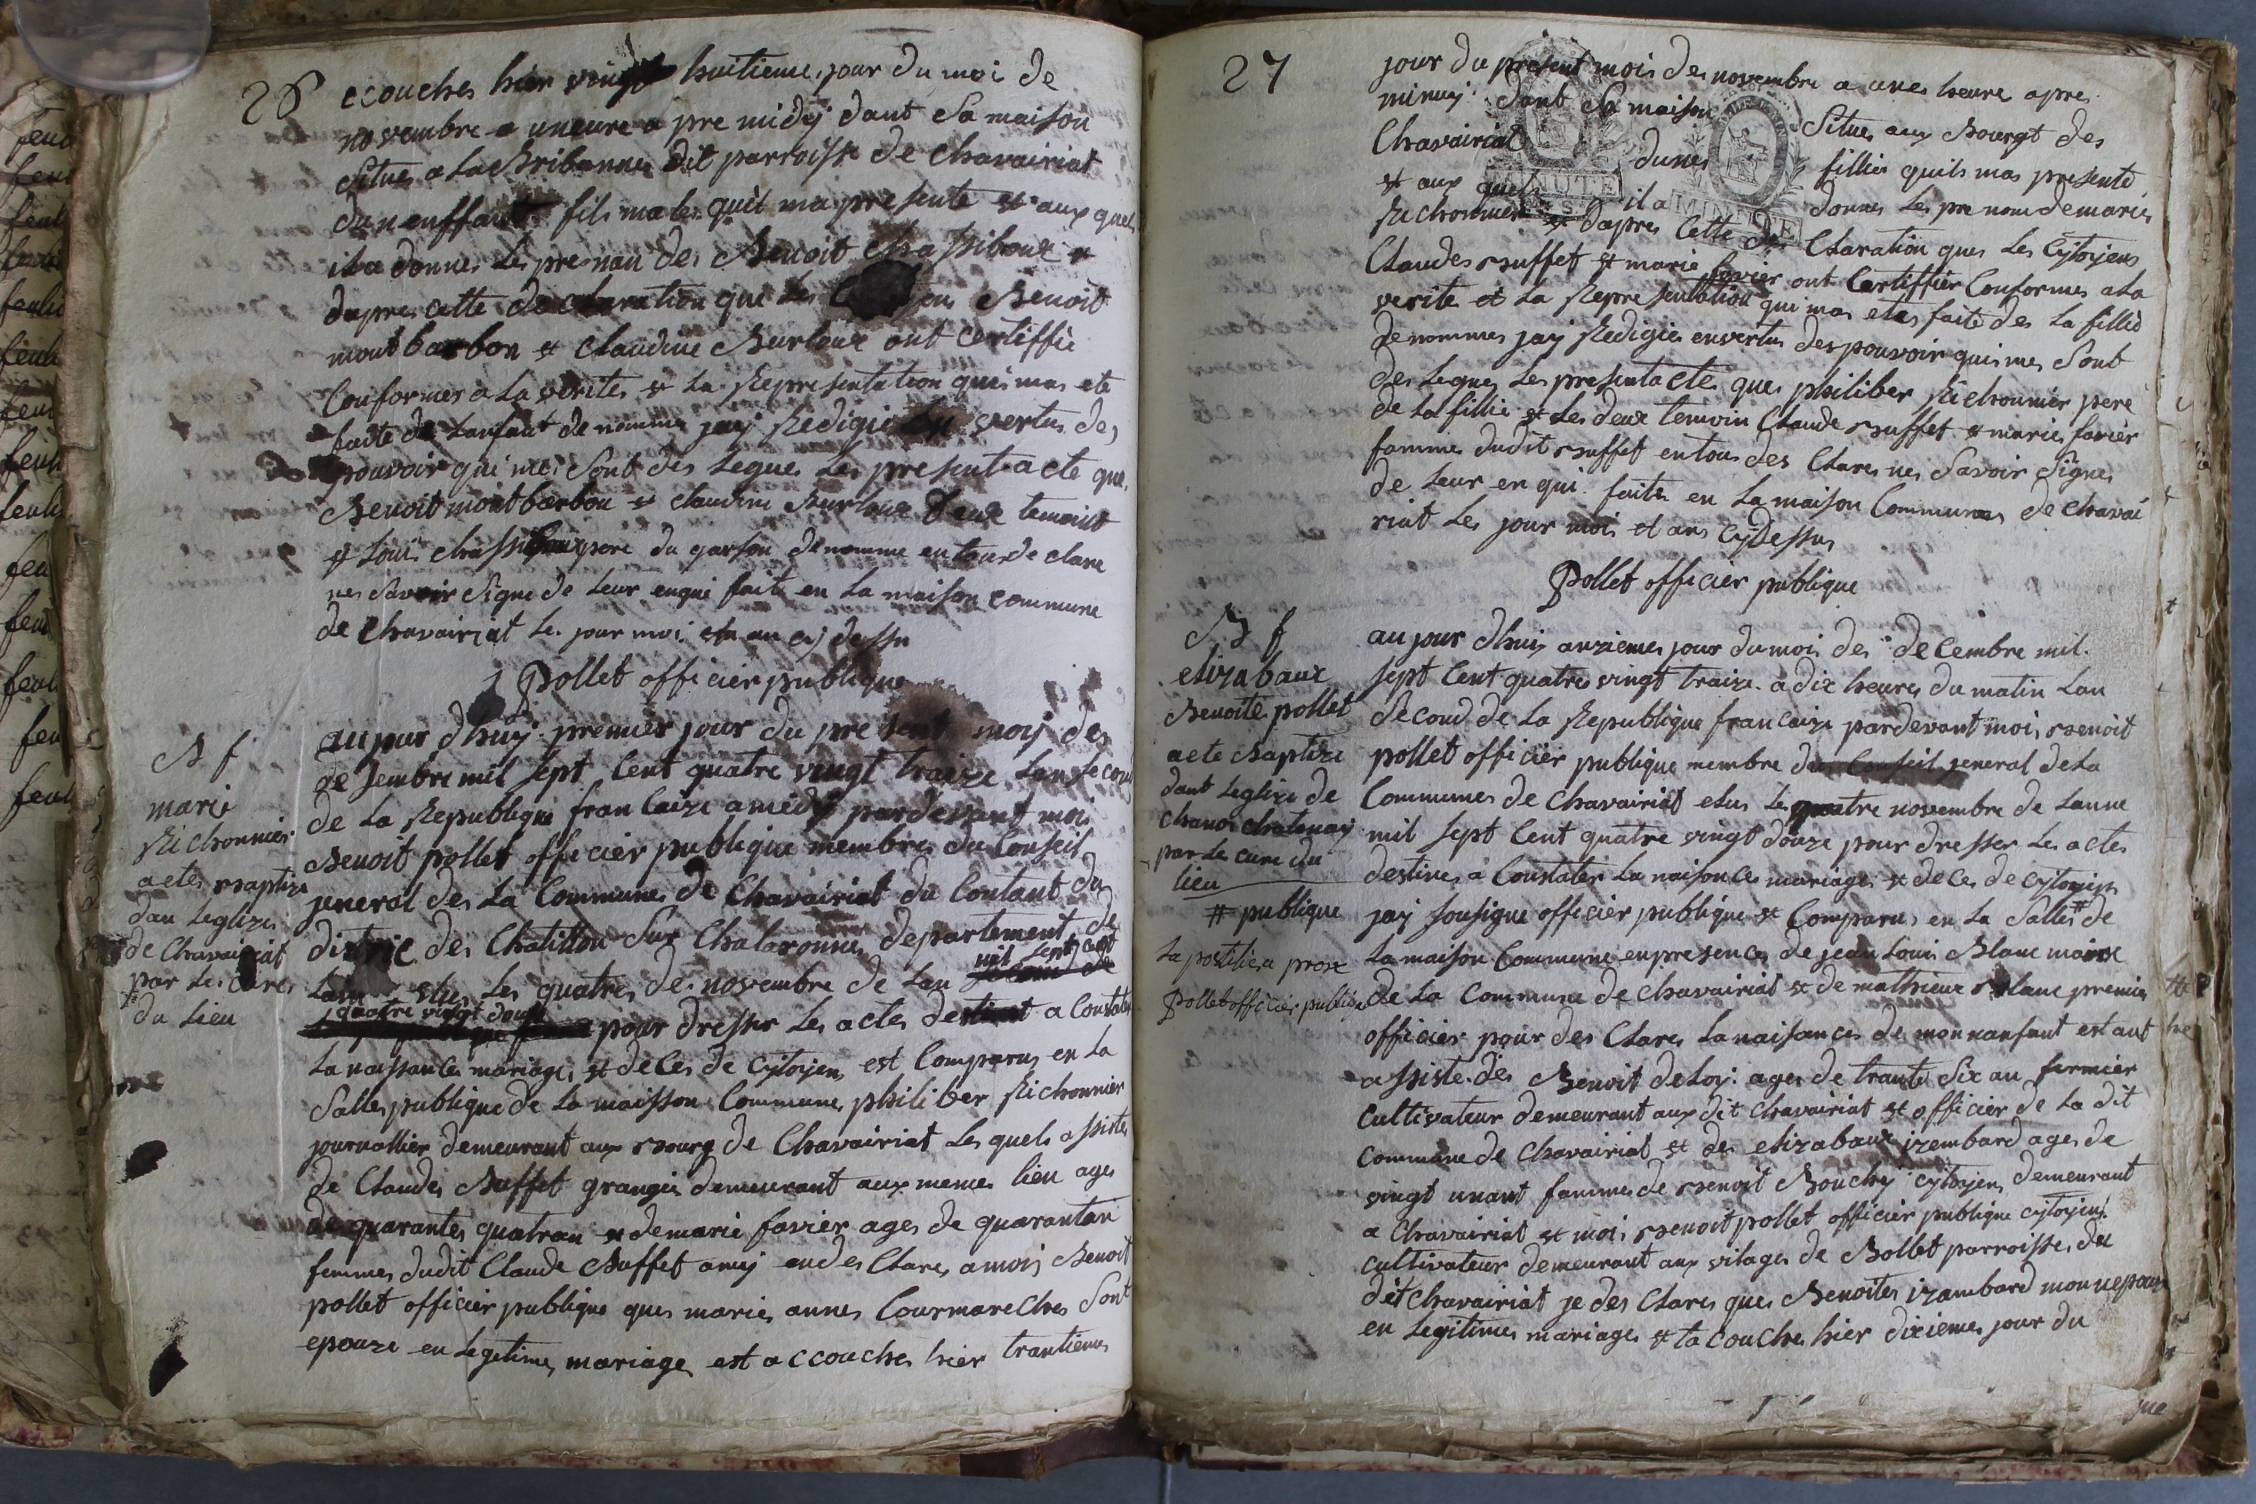 26
ecouches hier vingt huitieme jour du moi de
novembre a uneure a pre midy dant Sa maison
Situes a La Bribanne dit parroisse de Chavairiat
dun enffant fils males quil ma presente et aux quel
il a donnes Les prenon des Benoit Chassiboux et
dapres cette declaration que Les Benoit
montbarbon et Claudine Burloux ont Certiffié
Conformes a La verites et La Representation quis mas ete
faite de Lanfant denomme jay Redigie en vertus des
pouvoir qui mes Sont des Legues Les present acte que
Benoit montbarbon et Claudine Burloux deux temoint
et Louis Chassiboux pere du garson denomme en tous de clare
nes Savoir Signe de Leur enqui fait en La maison commune
de Chavairiat Les jour moi et an cy dessu
Pollet officier publique
B f
marie
Richonnier
a etes Baptize
dan Leglize
de Chavairiat
par Les Cures
du Lieu
aujour dhuy premier jour du present moy des
desembre mil sept Cent quatre vingt traize Lan Second
de La Republique francaize a midy pardevant moi
Benoit pollet officier publique membres du Conseil
jeneral des La Commune de Chavairiat du Contant du
distric des Chatillon Sur Chalaronne departement de
Lain elus Les quatres de novembre de Lan mil sept cent
quatre vingt douze pour dresser Les actes destinet a Constater
La naissances mariages et deces de Cytoyen est Comparus en La
Salles publique de La maisson Commune philiber Richonnier
journallier demeurant aux Bourg de Chavairiat Les quels assistes
de Claudes Buffet granges demeurant aux memes Lieu ages
de quarantes quatran et demarie favier ages de quarantan
femmes dudit Claude Buffet amy en des Clares a moi Benoit
pollet officier publique ques marie annes Courmareches Sont
epouze en Legetimes mariage est accouches hier trantiemes
27
jour du present mois des novembre a unes heure apres
minuy dant Sa maison Situes aux Bourgt des
Chavairiat dunes filliés quils mas presente
et aux quels il a donnes Les prenom demaries
Richonnier et dapres Cette des Claration ques Les Cytoyens
Claudes Buffet et marie favier ont Certiffier Conformes a La
verite et La Representation qui mas etes faite des La filliés
denommes jay Redigies envertus des pouvoir quimes Sont
des Legues Les present acte ques philiber Richonnier pere
de La fillie et Les deux temoin Claude Buffet et maries favier
famme dudit Buffet entous des Clares nes Savoir Signes
de Leur en qui faite en La maison Communes de Chavai
riat Les jour moi et ans Cydessus
Pollet officier publique
B f
elizabaux
Benoite pollet
a ete Baptize
dant Leglize de
chanos chatenay
par Les cure du
lieu
# publique
La postilie a prove
Pollet officier publique
aujour dhuy onziemes jour dumois des decembre mil
sept Cent quatres vingt traize a dix heures du matin Lan
Second de La Republique francaize pardevant moi Benoit
pollet officier publique membre du Conseil jeneral de La
Communes de Chavairiat elus Les quatre novembre de Lanne
mil sept Cent quatre vingt douze pour dresser Les actes
destines a Constater La naisonce mariages et deces de cytoyens
jay Sousigne officier publique et Comparus en La Salles # de
La maison Commune en presences de jean Louis Blanc maire
de La Commune de Chavairiat et de mathieux Blanc premier
officier pour des Clares Lanaisances de monnanfant estant
assiste des Benoit deloy ages de trante Six an fermier
Cultivateur demeurant aux dit Chavairiat et officier de La dit
Commune de Chavairiat et des elizabaux izembard ages de
vingt unant fammes de Benoit Bouchy cytoyens demeurant
a Chavairiat et moi Benoit pollet officier publique cytoyens
cultivateur demeurant aux vilages de Bollet parroisse du
dit Chavairiat je des Clares ques Benoites izambard monnepouse
en Legitimes mariages et ta couches hier dixiemes jour du